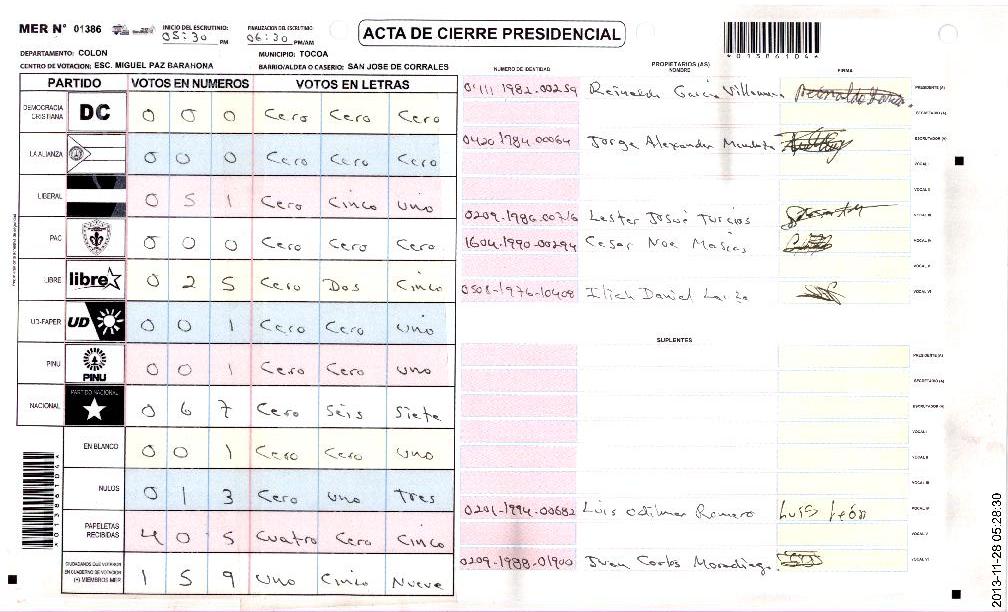 MER N° 01386
INICIO DEL ESCRUTINIO: 05:30 PM
FINALIZACION DEL ESCRUTINIO: 06:30 PM/AM
ACTA DE CIERRE PRESIDENCIAL
*01386104*
DEPARTAMENTO: COLON
MUNICIPIO: TOCOA
CENTRO DE VOTACION: ESC. MIGUEL PAZ BARAHONA
BARRIO/ALDEA O CASERIO: SAN JOSE DE CORRALES
PARTIDO VOTOS EN NUMEROS VOTOS EN LETRAS
DEMOCRACIA CRISTIANA DC 0 0 0 Cero Cero Cero
LA ALIANZA 0 0 0 Cero Cero Cero
LIBERAL 0 5 1 Cero Cinco uno
PAC 0 0 0 Cero Cero Cero
LIBRE libre 0 2 5 Cero Dos Cinco
UD-FAPER UD 0 0 1 Cero Cero uno
PINU PINU 0 0 1 Cero Cero uno
NACIONAL PARTIDO NACIONAL 0 6 7 Cero Seis Siete
EN BLANCO 0 0 1 Cero Cero uno
NULOS 0 1 3 Cero uno tres
PAPELETAS RECIBIDAS 4 0 5 Cuatro Cero Cinco
CIUDADANOS QUE VOTARON EN CUADERNO DE VOTACION (+) MIEMBROS MER 1 5 9 Uno Cinco Nueve
*01386104*
PROPIETARIOS (AS)
NUMERO DE IDENTIDAD NOMBRE FIRMA
1982-00259 Reinaldo Garcia PRESIDENTE (A)
SECRETARIO (A)
0420 1984 00064 Jorge Alexander ESCRUTADOR (A)
VOCAL I
VOCAL II
0209-1986-00716 Lester Josué Turcios VOCAL III
1604-1990-00294 Cesar Noe VOCAL IV
VOCAL V
0508-1976-10408 Daniel VOCAL VI
SUPLENTES
PRESIDENTE (A)
SECRETARIO (A)
ESCRUTADOR (A)
VOCAL I
VOCAL II
VOCAL III
0201-1994-00682 Luis Romero Luis León VOCAL IV
VOCAL V
0209-1988-01900 Juan Carlos VOCAL VI
2013-11-28 05:28:30